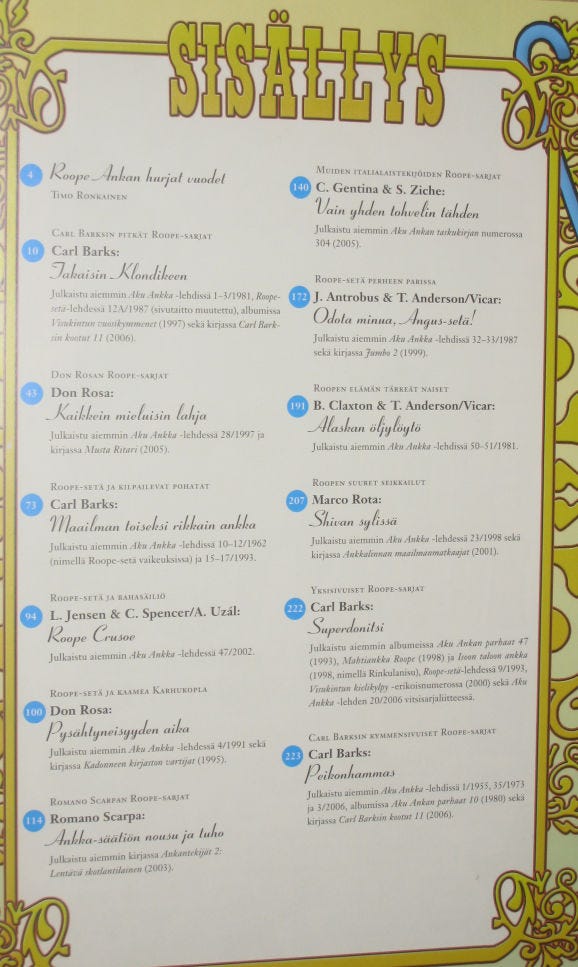 SISÄLLYS
4 Roope Ankan hurjat vuodet
Timo Ronkainen
Carl Barksin pitkät Roope-sarjat
10 Carl Barks:
Takaisin Klondikeen
Julkaistu aiemmin Aku Ankka -lehdissä 1–3/1981, Roope-
setä-lehdessä 12A/1987 (sivutaitto muutettu), albumissa
Visukintun vuosikymmenet (1997) sekä kirjassa Carl Bark-
sin kootut 11 (2006).
Don Rosan Roope-sarjat
43 Don Rosa:
Kaikkein mieluisin lahja
Julkaistu aiemmin Aku Ankka -lehdessä 28/1997 ja
kirjassa Musta Ritari (2005).
Roope-setä ja kilpailevat pohatat
73 Carl Barks:
Maailman toiseksi rikkain ankka
Julkaistu aiemmin Aku Ankka -lehdissä 10–12/1962
(nimellä Roope-setä vaikeuksissa) ja 15–17/1993.
Roope-setä ja rahasäiliö
94 L. Jensen & C. Spencer/A. Uzál:
Roope Crusoe
Julkaistu aiemmin Aku Ankka -lehdessä 47/2002.
Roope-setä ja kaamea Karhukopla
100 Don Rosa:
Pysähtyneisyyden aika
Julkaistu aiemmin Aku Ankka -lehdessä 4/1991 sekä
kirjassa Kadonneen kirjaston vartijat (1995).
Romano Scarpan Roope-sarjat
114 Romano Scarpa:
Ankka-säätiön nousu ja tuho
Julkaistu aiemmin kirjassa Ankantekijät 2:
Lentävä skotlantilainen (2003).
Muiden italialaistekijöiden Roope-sarjat
140 C. Gentina & S. Ziche:
Vain yhden tohvelin tähden
Julkaistu aiemmin Aku Ankan taskukirjan numerossa
304 (2005).
Roope-setä perheen parissa
172 J. Antrobus & T. Anderson/Vicar:
Odota minua, Angus-setä!
Julkaistu aiemmin Aku Ankka -lehdissä 32–33/1987
sekä kirjassa Jumbo 2 (1999).
Roopen elämän tärkeät naiset
191 B. Claxton & T. Anderson/Vicar:
Alaskan öljylöytö
Julkaistu aiemmin Aku Ankka -lehdissä 50–51/1981.
Roopen suuret seikkailut
207 Marco Rota:
Shivan sylissä
Julkaistu aiemmin Aku Ankka -lehdessä 23/1998 sekä
kirjassa Ankkalinnan maailmanmatkaajat (2001).
Yksisivuiset Roope-sarjat
222 Carl Barks:
Superdonitsi
Julkaistu aiemmin albumeissa Aku Ankan parhaat 47
(1993), Mahtiankka Roope (1998) ja Isoon taloon ankka
(1998, nimellä Rinkulanisu), Roope-setä-lehdessä 9/1993,
Visukintun kielikylpy -erikoisnumerossa (2000) sekä Aku
Ankka -lehden 20/2006 vitsisarjaliitteessä.
Carl Barksin kymmensivuiset Roope-sarjat
223 Carl Barks:
Peikonhammas
Julkaistu aiemmin Aku Ankka -lehdissä 1/1955, 35/1973
ja 3/2006, albumissa Aku Ankan parhaat 10 (1980) sekä
kirjassa Carl Barksin kootut 11 (2006).